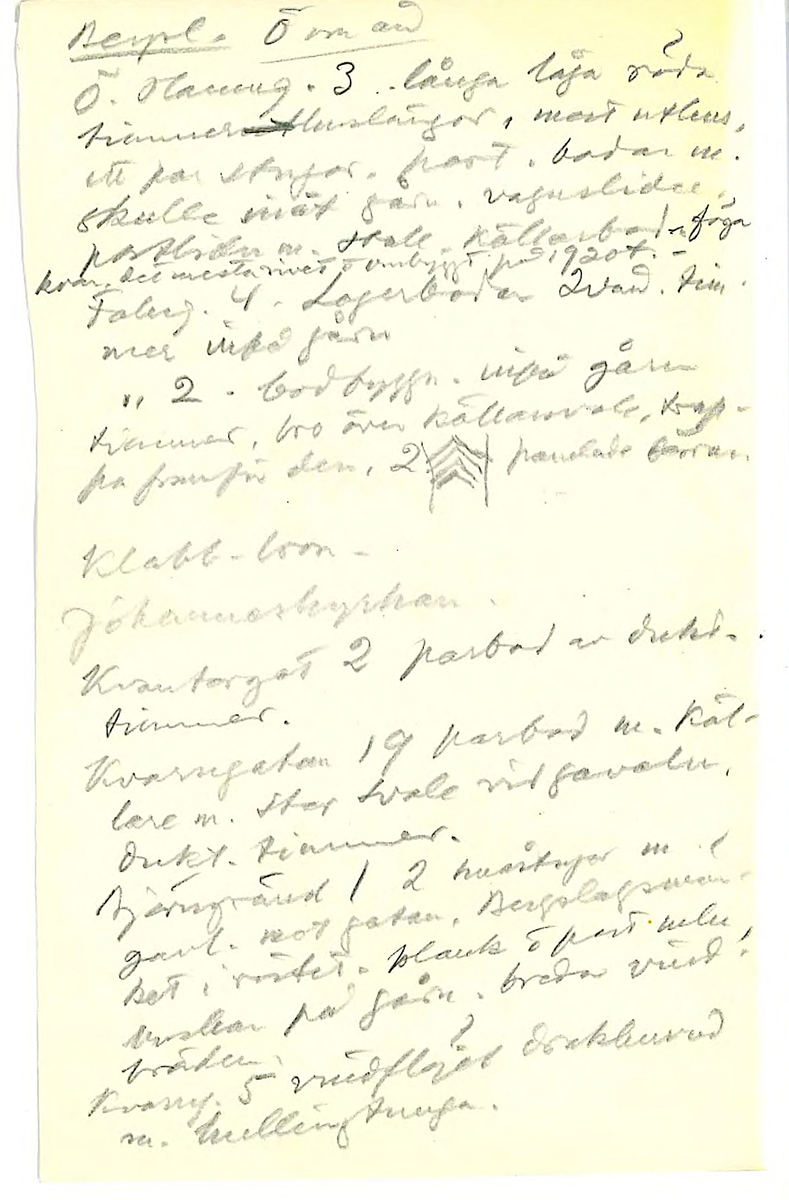 Bergsl. Ö
Ö. Hamng. 3. långa låga röda
timmer huslängor, mest uthus,
ett par stugor. port. bodar m.
skulle inåt gårn. vagnslider,
portlider m. svale. Källarbod, föga
kvar. det mesta rivet o ombyggt på 1920t. -
Falug. 4. Lagerbodar 2 vån. tim-
mer inpå gårn
„ 2. bodbyggn. inpå gårn
timmer, bro över källarsvale, trap-
pa framför den, 2 panelade dörrar
Klabb-bron -
Johanneskyrkan.
Kvartorget 2 parbod av dukt-
timmer.
Kvarngatan 19 parbod m. käl-
lare m. stor svale vid gaveln,
dukt. timmer.
Bjärsgränd 1 2 småstugor m
gavl. mot gatan. Bergslagsmär-
ket i röstet. plank o port mln
på gårn. breda vind-
bräden.
Kvarng. 5 vindflöjel drakhuvud
m. tunga.